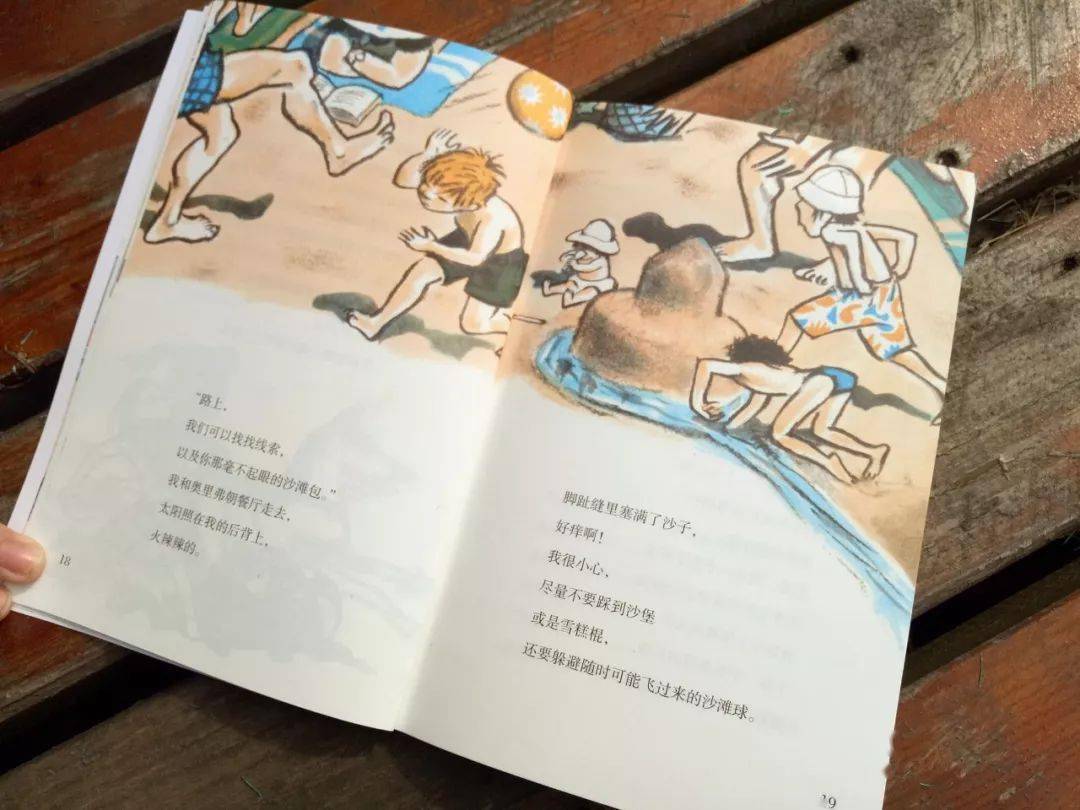 “路上，
我们可以找找线索，
以及你那毫不起眼的沙滩包。”
我和奥里弗朝餐厅走去，
太阳照在我的后背上，
火辣辣的。
18
脚趾缝里塞满了沙子，
好痒啊！
我很小心，
尽量不要踩到沙堡
或是雪糕棍，
还要躲避随时可能飞过来的沙滩球。
19